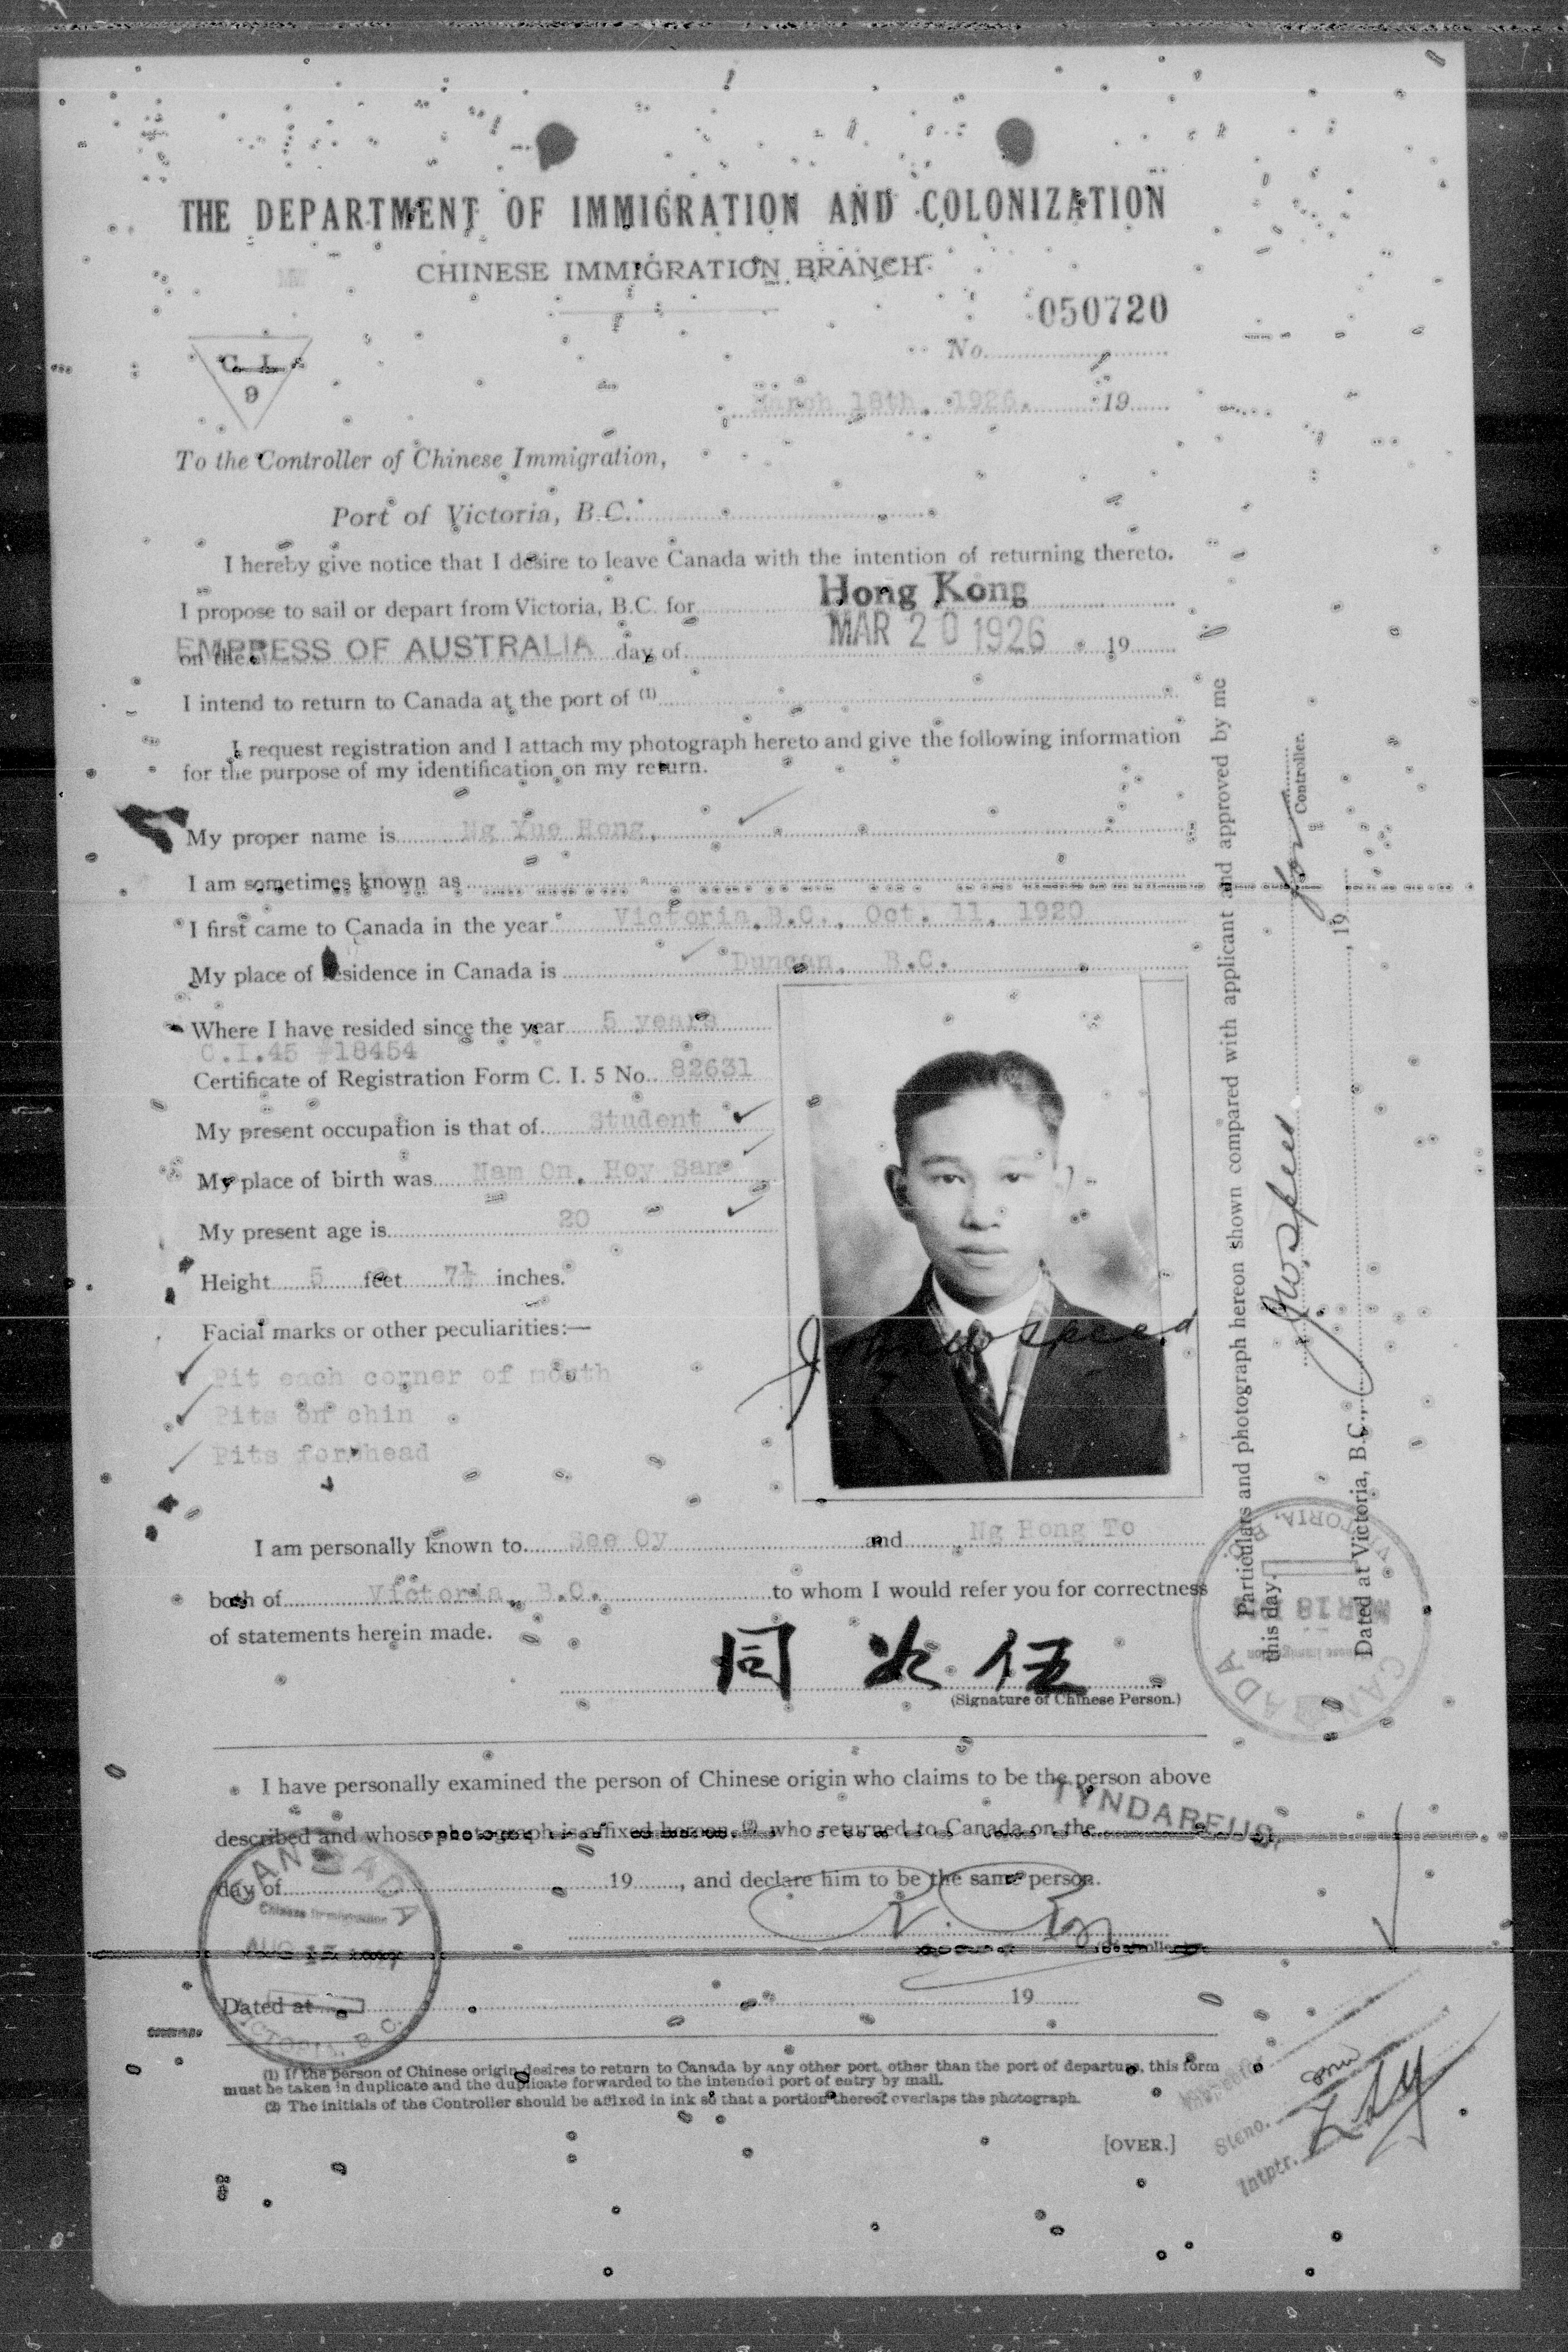 THE DEPARTMENT OF IMMIGRATION AND COLONIZATION
CHINESE IMMIGRATION BRANCH
050720
No.
C. I.
9
March 18th, 1926. 19
To the Controller of Chinese Immigration,
Port of Victoria, B.C.
I hereby give notice that I desire to leave Canada with the intention of returning thereto.
I propose to sail or depart from Victoria, B.C. for Hong Kong
on the EMPRESS OF AUSTRALIA day of MAR 20 1926 19
I intend to return to Canada at the port of (1)
I request registration and I attach my photograph hereto and give the following information
for the purpose of my identification on my return.
My proper name is Ng Yue Hong,
I am sometimes known as
I first came to Canada in the year Victoria, B.C., Oct. 11, 1920
My place of residence in Canada is Duncan, B.C.
Where I have resided since the year 5 years
C.I.45 #18454
Certificate of Registration Form C. I. 5 No. 82631
My present occupation is that of Student
My place of birth was Nam On, Hoy San
My present age is 20
Height 5 feet 7½ inches.
Facial marks or other peculiarities:—
Pit each corner of mouth
Pits on chin
Pits forehead
I am personally known to See Oy and Ng Hong To
both of Victoria, B.C. to whom I would refer you for correctness
of statements herein made.
同 次 伍
(Signature of Chinese Person.)
I have personally examined the person of Chinese origin who claims to be the person above
TYNDAREUS.
described and whose photograph is affixed hereon, (2) who returned to Canada on the
day of 19 , and declare him to be the same person.
Controller
Dated at 19
CANADA
Chinese Immigration
AUG 15
VICTORIA, B.C.
(1) If the person of Chinese origin desires to return to Canada by any other port, other than the port of departure, this form
must be taken in duplicate and the duplicate forwarded to the intended port of entry by mail.
(2) The initials of the Controller should be affixed in ink so that a portion thereof overlaps the photograph.
[OVER.]
Inspector
Steno.
Intptr.
Particulars and photograph hereon shown compared with applicant and approved by me
this day.
for Controller.
Dated at Victoria, B.C., , 19
CANADA
Chinese Immigration
MAR 18
VICTORIA, B.C.